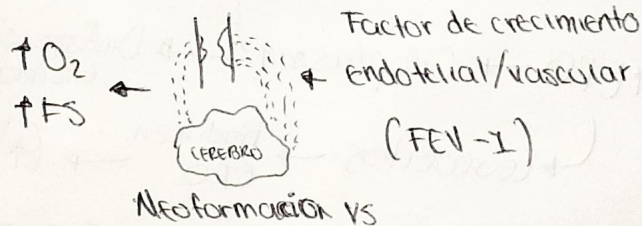 Factor de crecimiento
endotelial/vascular
(FEV-1)
↑O₂
↑FS
CEREBRO
Neoformación VS